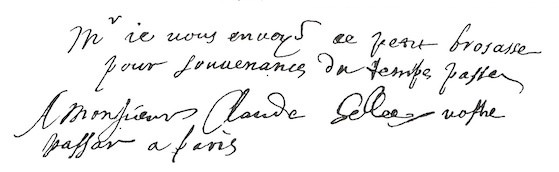 Mr ie vous envoy ce petit brosasse
pour souvenance du temps passe
A monsieur Claude Gellee nostre
a paris